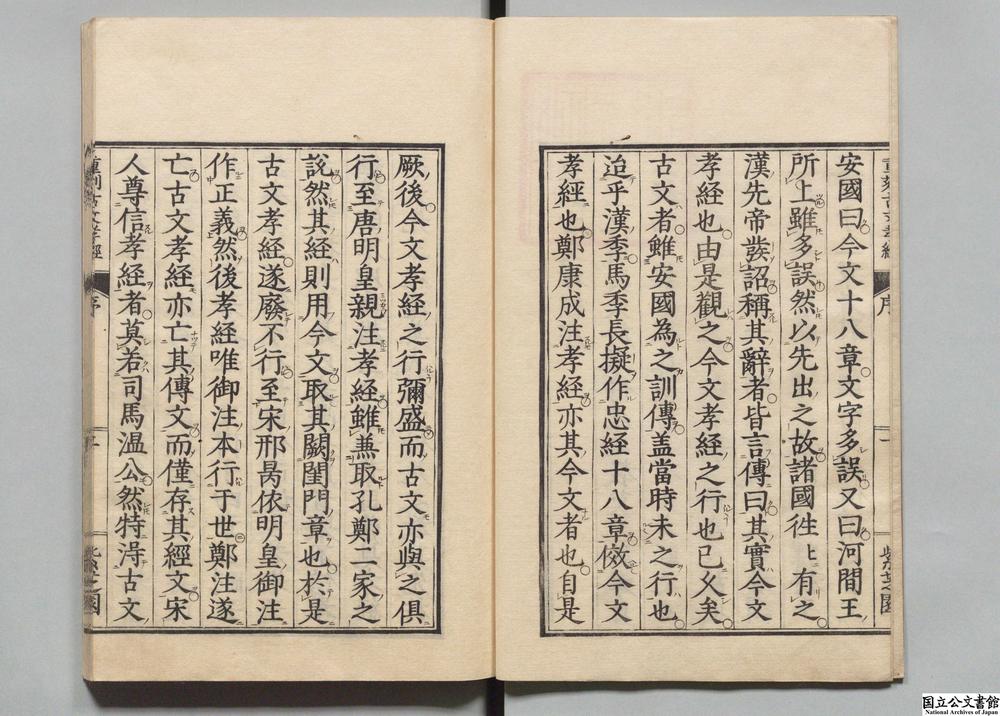 安國曰今文十八章文字多誤又曰河間王
所上雖多誤然以先出之故諸國徃上有之
漢先帝發詔稱其辭者皆言傳曰其實今文
孝經也由是觀之今文孝經之行也已久矣
古文者雖安國為之訓傳盖當時未之行也
迨乎漢季馬季長擬作忠經十八章倣今文
孝經也鄭康成注孝經亦其今文者也自是
厥後今文孝經之行彌盛而古文亦與之俱
行至唐明皇親注孝經雖兼取孔鄭二家之
說然其經則用今文取其闕閨門章也於是
古文孝經遂廢不行至宋邢昺依明皇御注
作正義然後孝經唯御注本行于世鄭注遂
亡古文孝經亦亡其傳文而僅存其經文宋
人尊信孝經者莫若司馬温公然特淂古文
序
紫芝園
国立公文書館
National Archives of Japan